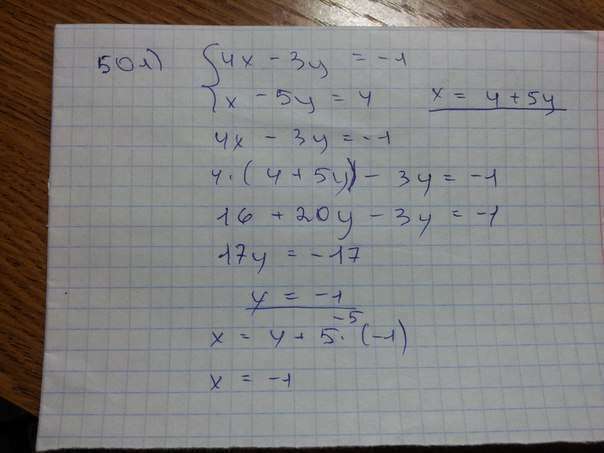 501) { 4x - 3y = -1
{ x - 5y = 4    x = 4 + 5y
4x - 3y = -1
4·(4 + 5y) - 3y = -1
16 + 20y - 3y = -1
17y = -17
y = -1
-5
x = 4 + 5·(-1)
x = -1